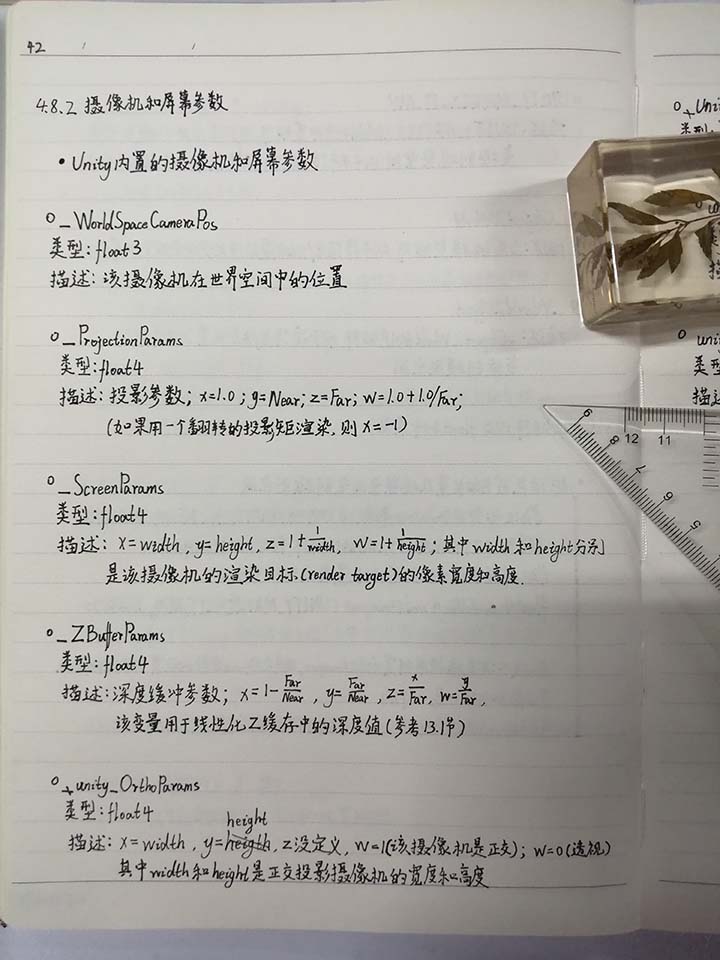 42
4.8.2 摄像机和屏幕参数
• Unity内置的摄像机和屏幕参数
○ _WorldSpaceCameraPos
类型:float3
描述:该摄像机在世界空间中的位置
○ _ProjectionParams
类型:float4
描述:投影参数; x=1.0; y=Near; z=Far; w=1.0+1.0/Far;
(如果用一个翻转的投影矩渲染,则 x=-1)
○ _ScreenParams
类型:float4
描述: x=width, y=height, z=1+1/width, w=1+1/height; 其中width和height分别
是该摄像机的渲染目标(render target)的像素宽度和高度.
○ _ZBufferParams
类型:float4
描述:深度缓冲参数; x=1-Far/Near, y=Far/Near, z=x/Far, w=y/Far,
该变量用于线性化Z缓存中的深度值(参考13.1节)
○ unity_OrthoParams
类型:float4
height
描述: x=width, y=heigth, z没定义, w=1(该摄像机是正交); w=0(透视)
其中width和height是正交投影摄像机的宽度和高度
○ Uni
类型:
○ uni
类型
描
○ uni
类型
描述
12 11
9
7
6
5